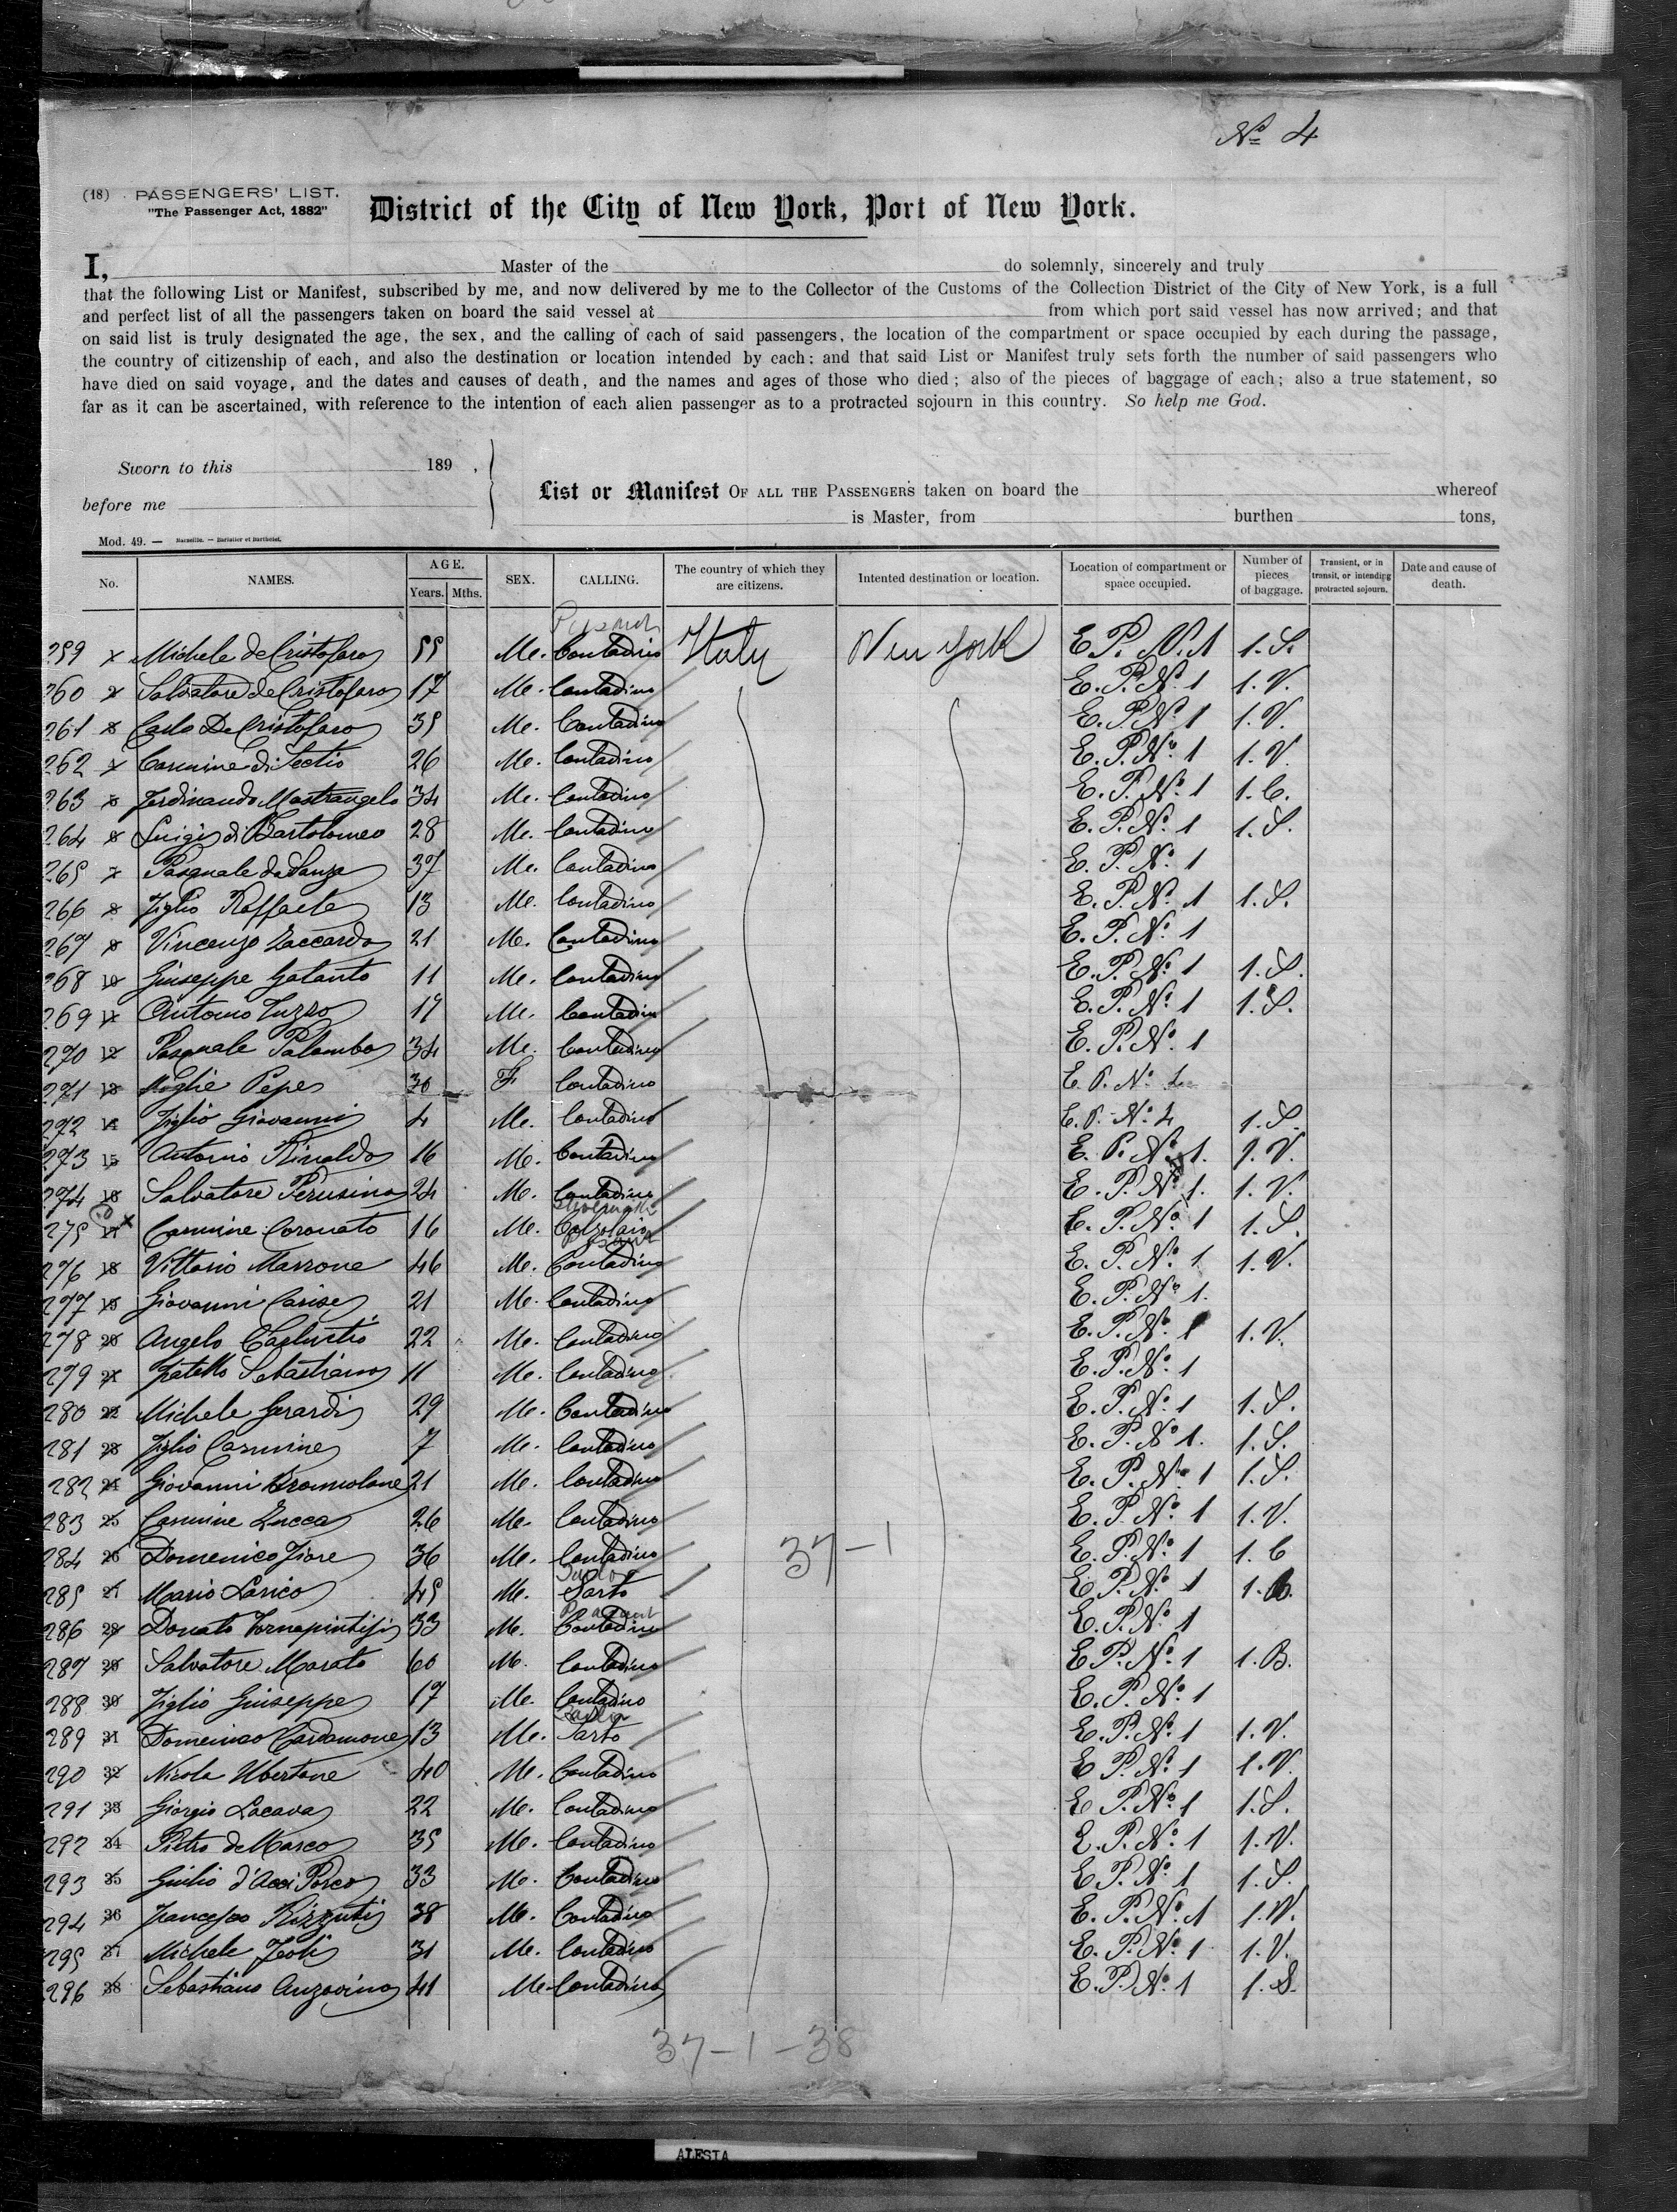 No 4
(18) PASSENGERS' LIST.
"The Passenger Act, 1882"
District of the City of New York, Port of New York.
I, Master of the do solemnly, sincerely and truly
that the following List or Manifest, subscribed by me, and now delivered by me to the Collector of the Customs of the Collection District of the City of New York, is a full
and perfect list of all the passengers taken on board the said vessel at from which port said vessel has now arrived; and that
on said list is truly designated the age, the sex, and the calling of each of said passengers, the location of the compartment or space occupied by each during the passage,
the country of citizenship of each, and also the destination or location intended by each; and that said List or Manifest truly sets forth the number of said passengers who
have died on said voyage, and the dates and causes of death, and the names and ages of those who died; also of the pieces of baggage of each; also a true statement, so
far as it can be ascertained, with reference to the intention of each alien passenger as to a protracted sojourn in this country. So help me God.
Sworn to this 189 ,
before me
List or Manifest OF ALL THE PASSENGERS taken on board the whereof
is Master, from burthen tons,
Mod. 49. — Marseille. — Barlatier et Barthelet.
No. NAMES. AGE. Years. Mths. SEX. CALLING. The country of which they are citizens. Intented destination or location. Location of compartment or space occupied. Number of pieces of baggage. Transient, or in transit, or intending protracted sojourn. Date and cause of death.
259 Michele de Cristofaro 55 Me. Contadino Italy New York E. P. N. 1 1. S.
260 Salvatore de Cristofaro 17 Me. Contadino E. P. No. 1 1. V.
261 Carlo De Cristofaro 35 Me. Contadino E. P. No. 1 1. V.
262 Carmine di 26 Me. Contadino E. P. No. 1 1. V.
263 Ferdinando Mastrangelo 34 Me. Contadino E. P. No. 1 1. C.
264 Luigi di Bartolomeo 28 Me. Contadino E. P. No. 1 1. S.
265 Pasquale 37 Me. Contadino E. P. No. 1
266 Figlio Raffaele 13 Me. Contadino E. P. No. 1 1. S.
267 Vincenzo Zaccardo 21 M. Contadino E. P. No. 1
268 Giuseppe Galanto 11 Me. Contadino E. P. No. 1 1. S.
269 Antonio Tuzzo 17 Me. Contadino E. P. No. 1 1. S.
270 12 Pasquale Palombo 34 Me. Contadino E. P. No. 1
271 13 Moglie Pepe 30 F. Contadino E. P. No.
272 14 Figlio Giovanni 4 Me. Contadino E. P. No. 4 1. S.
273 15 Antonio Rinaldo 16 Me. Contadino E. P. No. 1. 1. V.
274 16 Salvatore Perusino 24 M. Contadino E. P. No. 1. 1. V.
275 17 Carmine Coronato 16 Me. Calzolaio E. P. No. 1 1. S.
276 18 Vittorio Marrone 46 Me. Contadino E. P. No. 1 1. V.
277 19 Giovanni Carise 21 Me. Contadino E. P. No. 1.
278 20 Angelo 22 Me. Contadino E. P. No. 1 1. V.
279 21 Fratello Sebastiano 11 Me. Contadino E. P. No. 1
280 22 Michele Gerardi 29 Me. Contadino E. P. No. 1 1. S.
281 23 Figlio Carmine 7 Me. Contadino E. P. No. 1. 1. S.
282 24 Giovanni 21 Me. Contadino E. P. No. 1 1. S.
283 25 Carmine Zucca 26 Me. Contadino E. P. No. 1 1. V.
284 26 Domenico Fiore 36 Me. Contadino 37 – 1 E. P. No. 1 1. C
285 27 Mario Larico 45 M. Sarto E. P. No. 1 1. B.
286 28 Donato 33 M. Contadino E. P. No. 1
287 29 Salvatore Morato 60 M. Contadino E. P. No. 1 1. B.
288 30 Figlio Giuseppe 17 Me. Contadino E. P. No. 1
289 31 Domenico Cardamone 13 Me. Sarto E. P. No. 1 1. V.
290 32 Nicola Ubertone 40 Me. Contadino E. P. No. 1 1. V.
291 33 Giorgio Lacava 22 Me. Contadino E. P. No. 1 1. S.
292 34 Pietro de Marco 35 Me. Contadino E. P. No. 1 1. V.
293 35 Giulio d'Acci Porco 33 Me. Contadino E. P. No. 1 1. S.
294 36 Francesco Rizzuti 38 Me. Contadino E. P. No. 1 1. V.
295 37 Michele Feoli 31 Me. Contadino E. P. No. 1 1. V.
296 38 Sebastiano Anzovino 41 Me. Contadino E. P. No. 1 1. S.
37 – 1 – 38
ALESIA